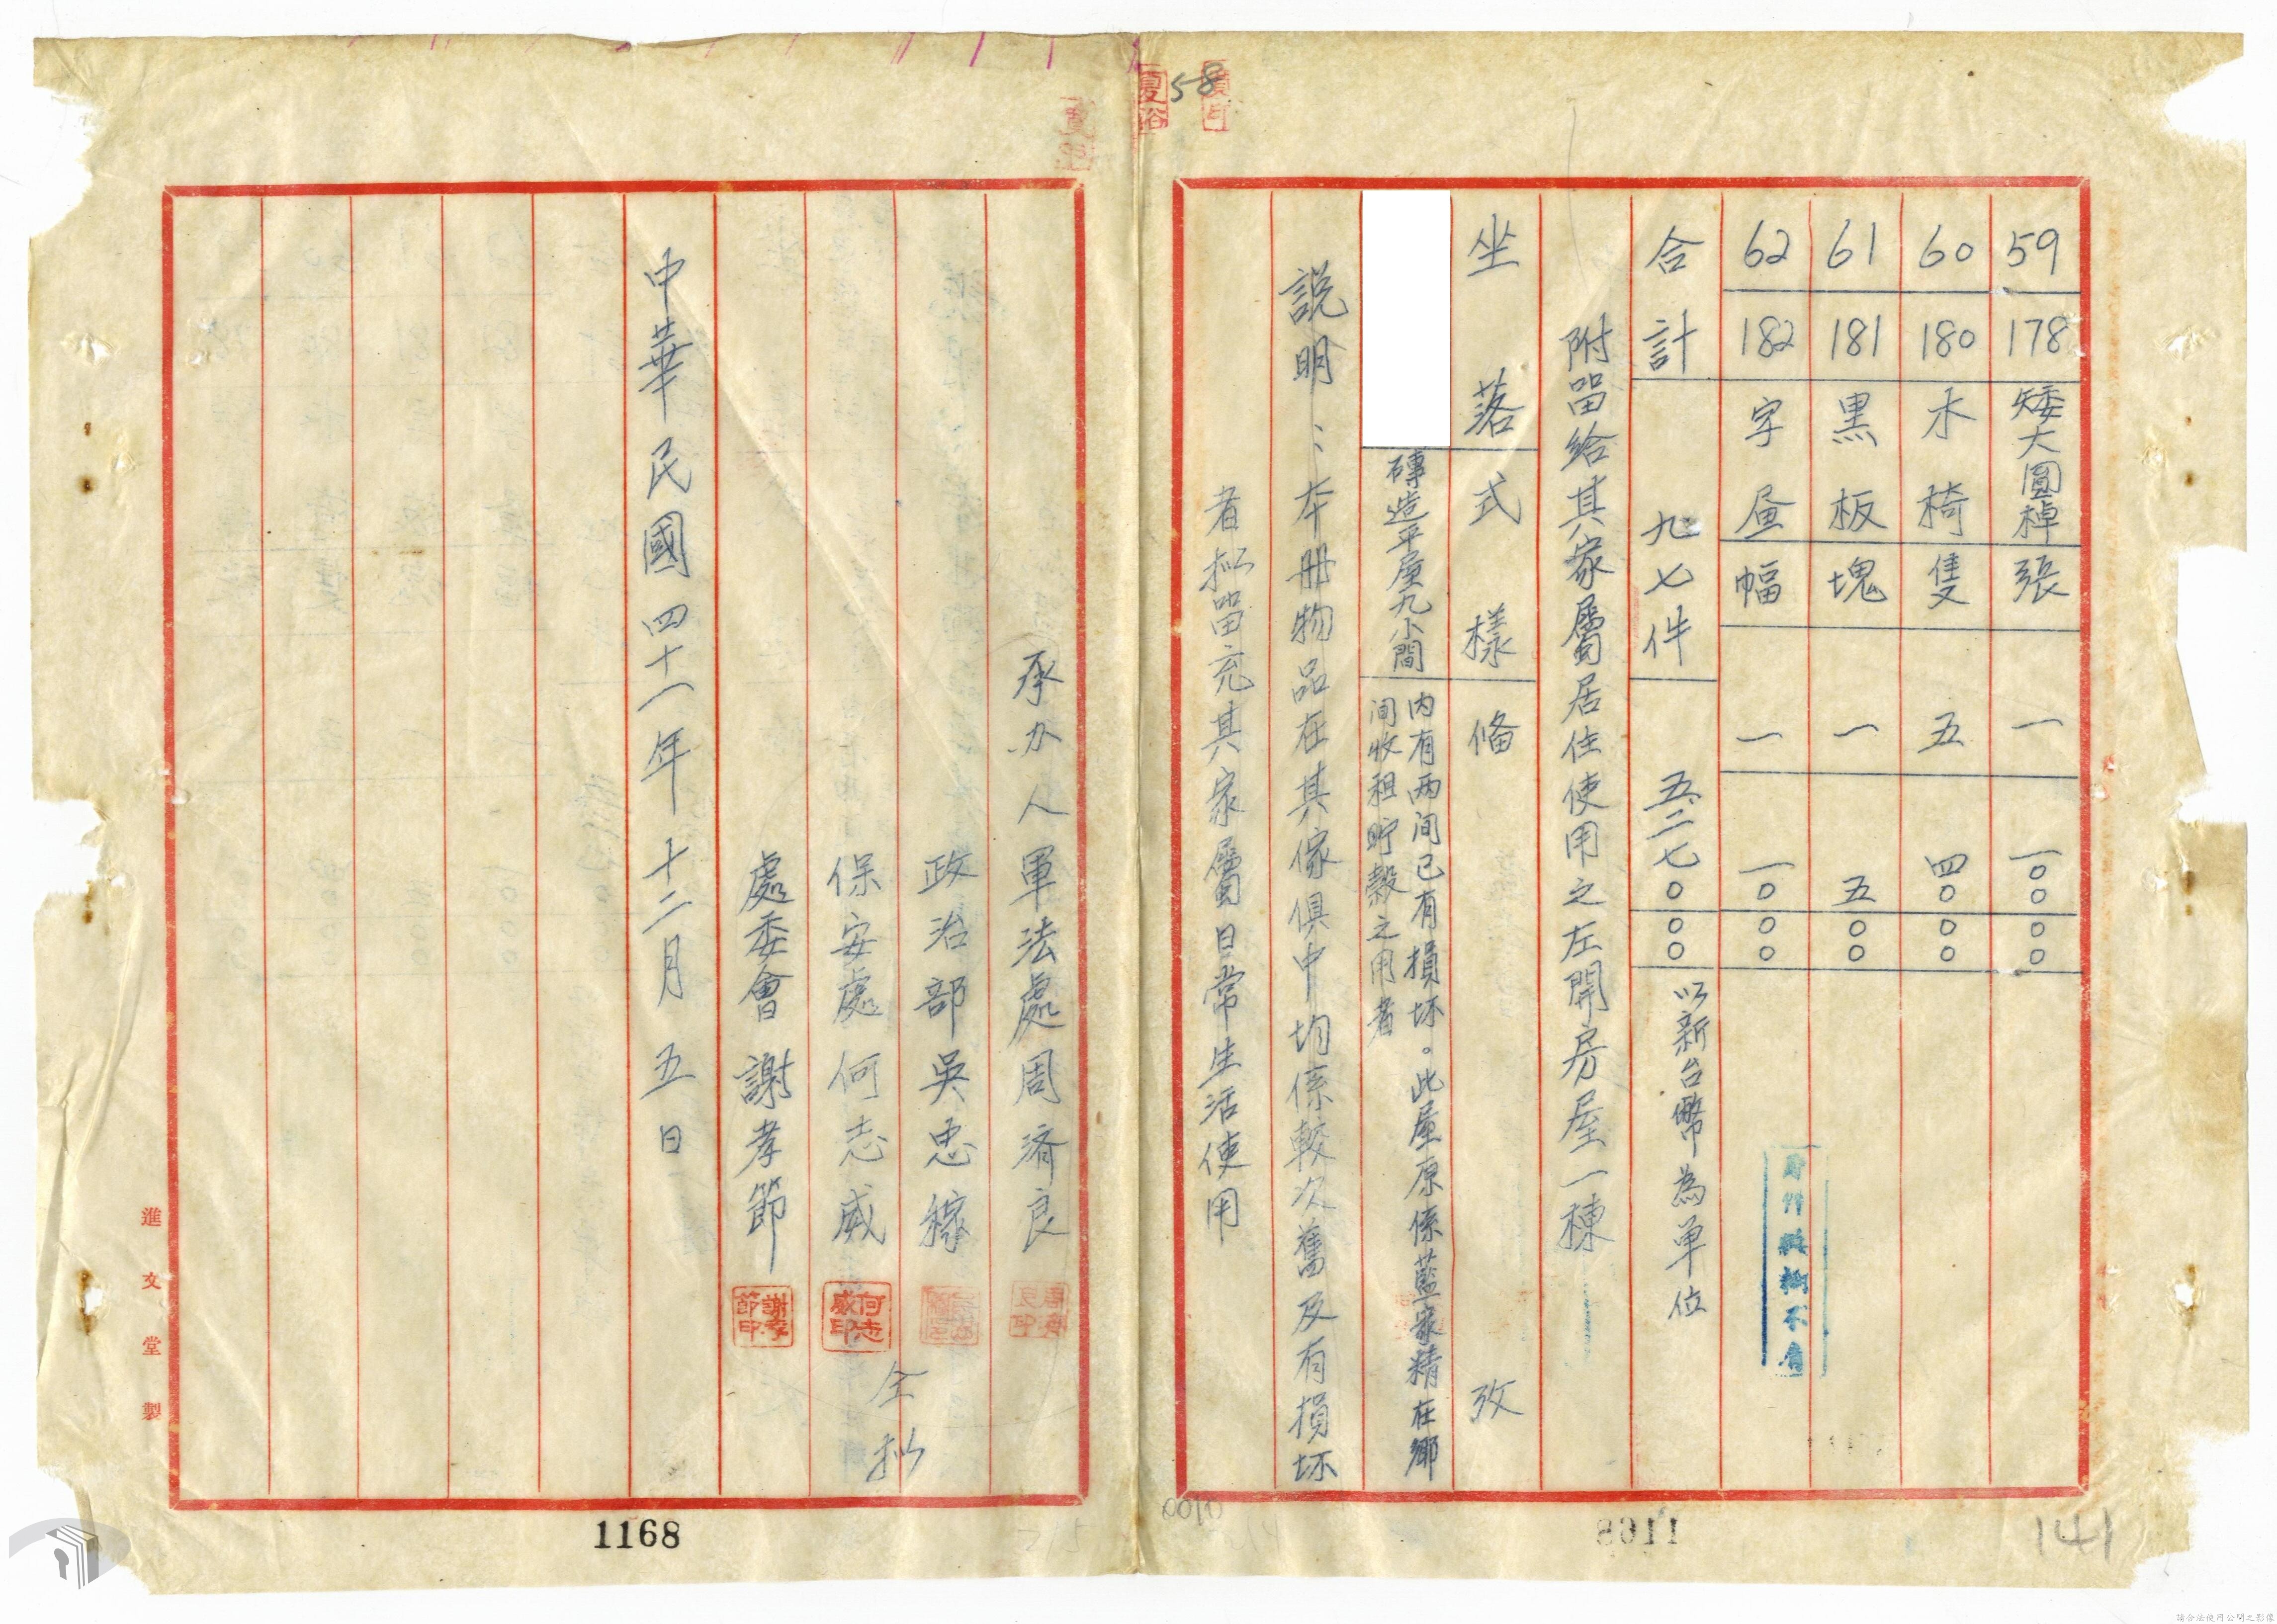 58
59 178 矮大圓棹 張 一 一〇〇〇〇
60 180 木椅 隻 五 四〇〇〇
61 181 黑板 塊 一 五〇〇
62 182 字画 幅 一 一〇〇〇
合計 九七件 五二七〇〇〇 以新台幣為单位
附畱給其家屬居住使用之左開房屋一棟
坐落 式樣 偹攷
磚造平屋九小間 內有两间已有損坏。此屋原係藍家精在鄉
间收租貯穀之用者
說明：本册物品在其傢俱中均係較次舊及有損坏
者拟畱充其家屬日常生活使用
承办人軍法處周济良
政治部吳忠
保安處何志威
處委會謝孝節
仝拟
何志威印
謝孝節印
中華民國四十一年十二月五日
進文堂製
1168
141
請合法使用公開之影像